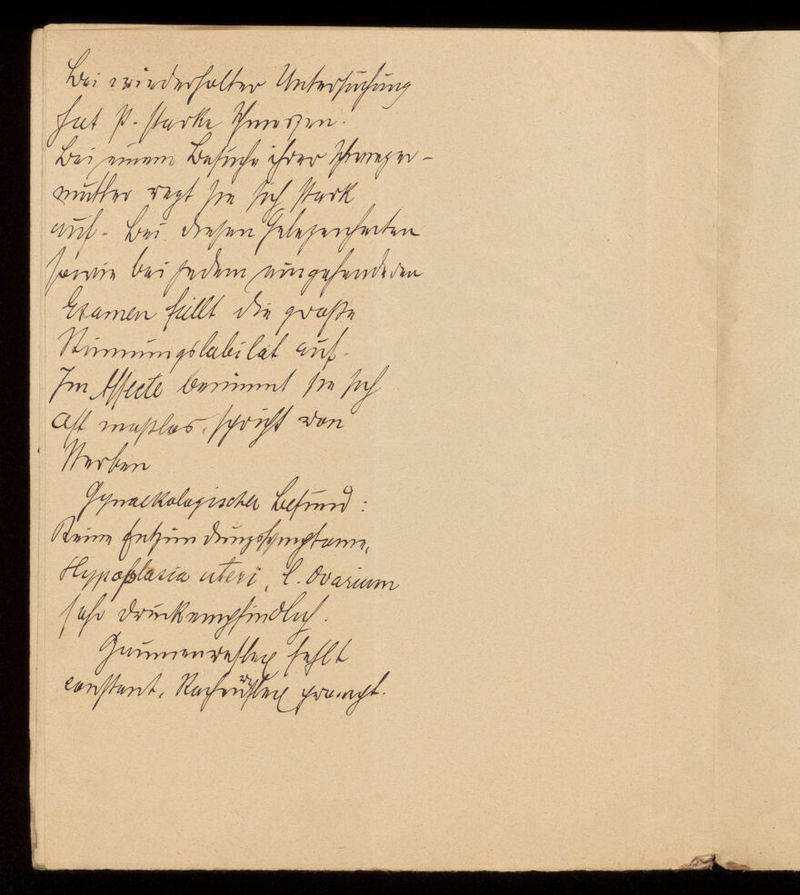 Bei wiederholter Untersuchung
hat P. starke Schmerzen.
Bei einem Besuche ihrer Schwieger-
mutter regt sie sich stark
auf. Bei diesen Gelegenheiten
sowie bei jedem eingehenderen
Examen fällt die große
Stimmungslabilät auf.
Im Affecte benimmt sie sich
oft maßlos, spricht von
Sterben
Gynaekologischer Befund:
Keine Entzündungssymptome,
Hypoplasia uteri, l. Ovarium
sehr druckempfindlich.
Gaumenreflex fehlt
constant, Rachenreflex prompt.